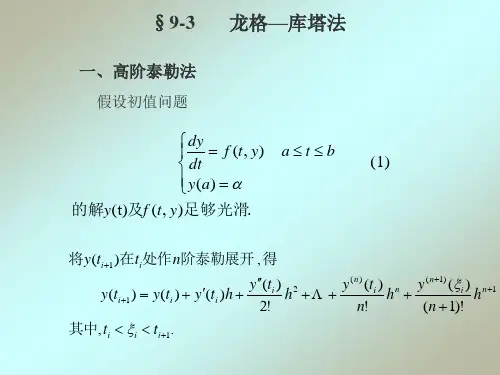 §9-3 龙格—库塔法
一、高阶泰勒法
假设初值问题
{ dy/dt = f(t, y) a ≤ t ≤ b
y(a) = α (1)
的解y(t)及f(t, y)足够光滑.
将y(t_{i+1})在t_i处作n阶泰勒展开,得
y(t_{i+1}) = y(t_i) + y′(t_i)h + y″(t_i)/2! h² + Λ + y^{(n)}(t_i)/n! h^n + y^{(n+1)}(ξ_i)/(n+1)! h^{n+1}
其中, t_i < ξ_i < t_{i+1}.